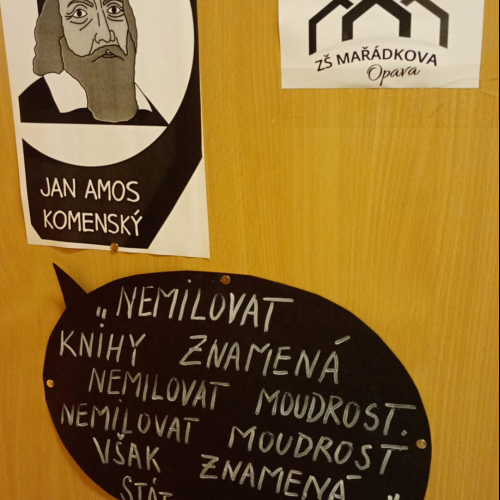 ZŠ MAŘÁDKOVA
Opava
JAN AMOS
KOMENSKÝ
„NEMILOVAT
KNIHY ZNAMENÁ
NEMILOVAT MOUDROST.
NEMILOVAT MOUDROST
VŠAK ZNAMENÁ
STÁT